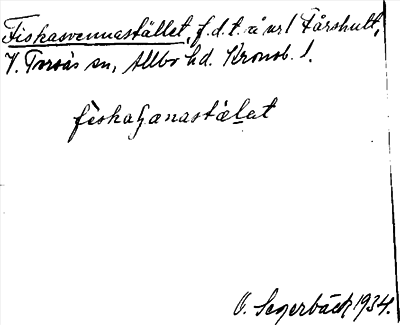 Fiskasvennastället, f.d.t. å nr 1 Fårshult,
V. Torsås sn, Allbo hd. Kronob. l.
feskahænastælat
O. Segerbäck 1934.